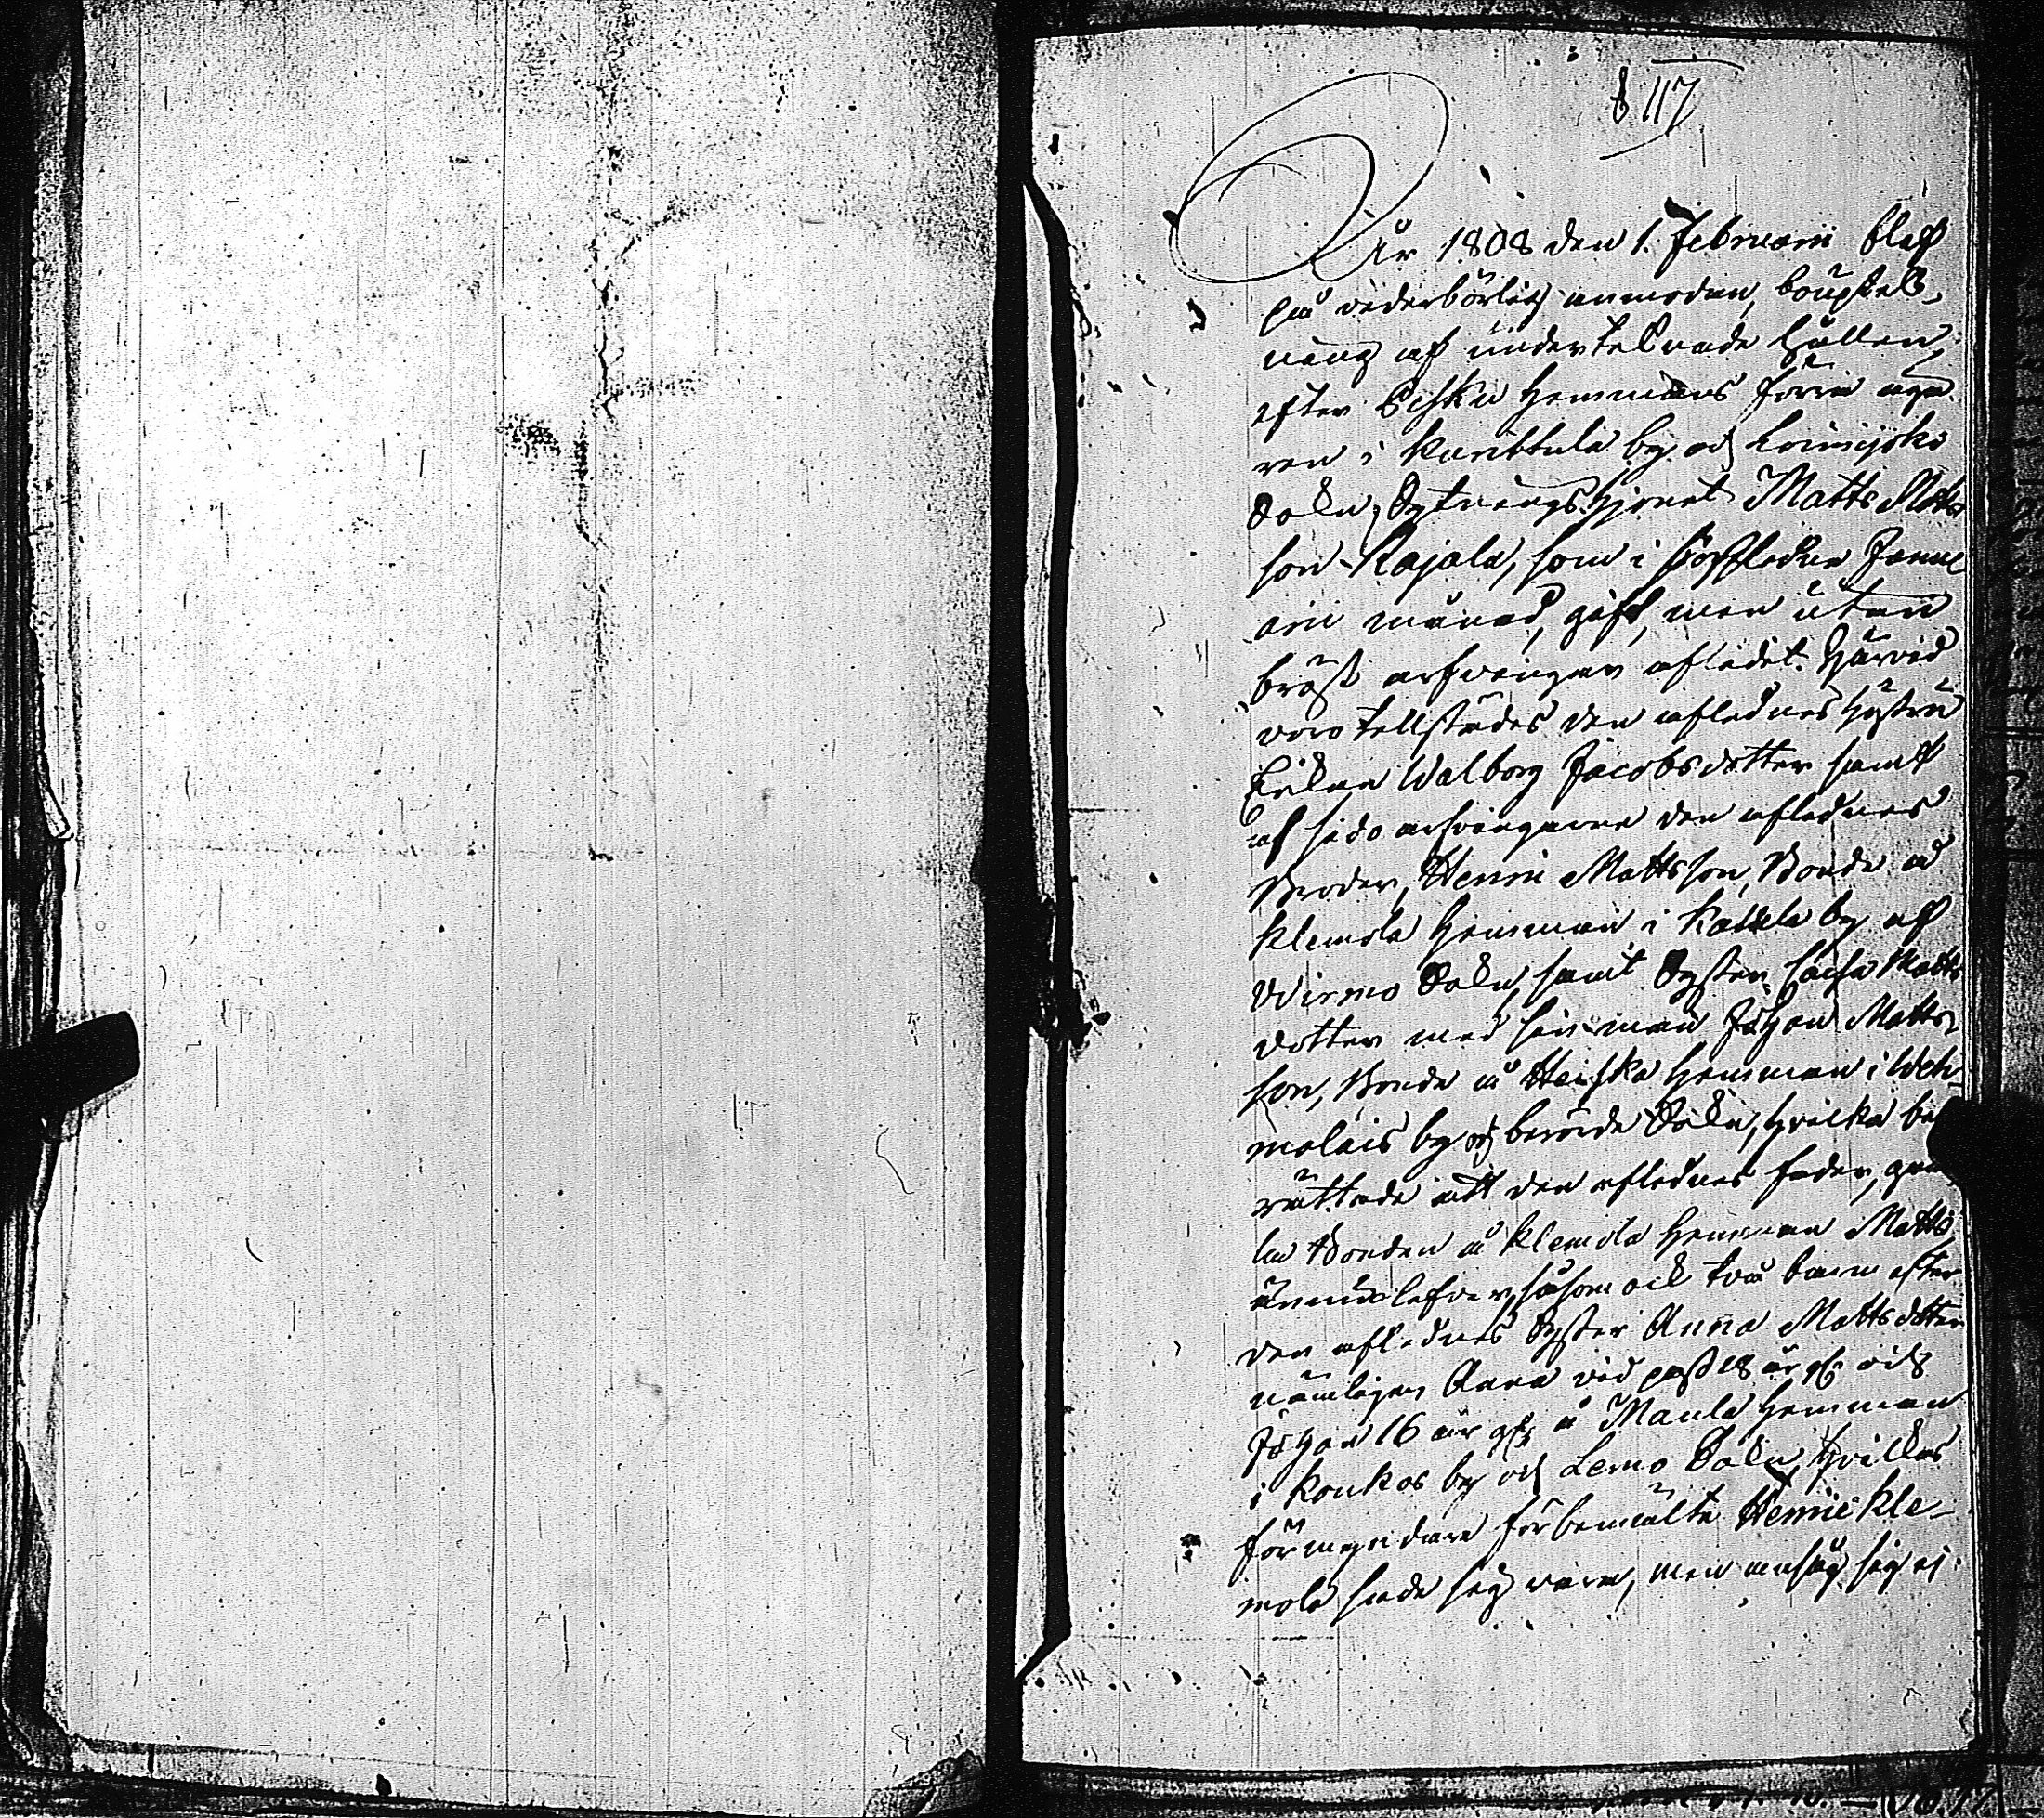 § 117
År 1808 den 1. Februarii blef
på vederbörlig anmodan, bouptek-
ning af undertecknade hållen,
efter Esku Hemmans förra äga-
ren i Karittula by och Loimijoki
Sokn, Sytningshjonet Matts Matts
son Rajala, som i sistledne Janu
arii månad, gift, men utan
bröst arfvingar aflidit. Härvid
voro tillstädes den aflednes Hustru
Enkan Walborg Jacobsdotter samt
af sido arfvingarne den aflednes
Broder, Henric Mattsson, Bonde å
Klemola Hemman i by af
Wirmo Sokn, samt Syster, Caisa Matts
dotter med sin man Johan Matts
son, Bonde å Heiska Hemman i Weh-
molais by och berörde Sokn, hvilka be
rättade att den aflednes fader, gam
la Bonden å Klemola Hemman Matts
ännu lefver, såsom ock två barn efter
den aflednes Syster Anna Mattsdotter
nämligen Anna vid pass 18 år gl. och
Johan 16 år gl. å Maula Hemman
i Konkos by och Lemo Sokn, hvilkas
förmyndare förbemälte Henric Kle-
mola sade sig vara, men ansåg sig ej